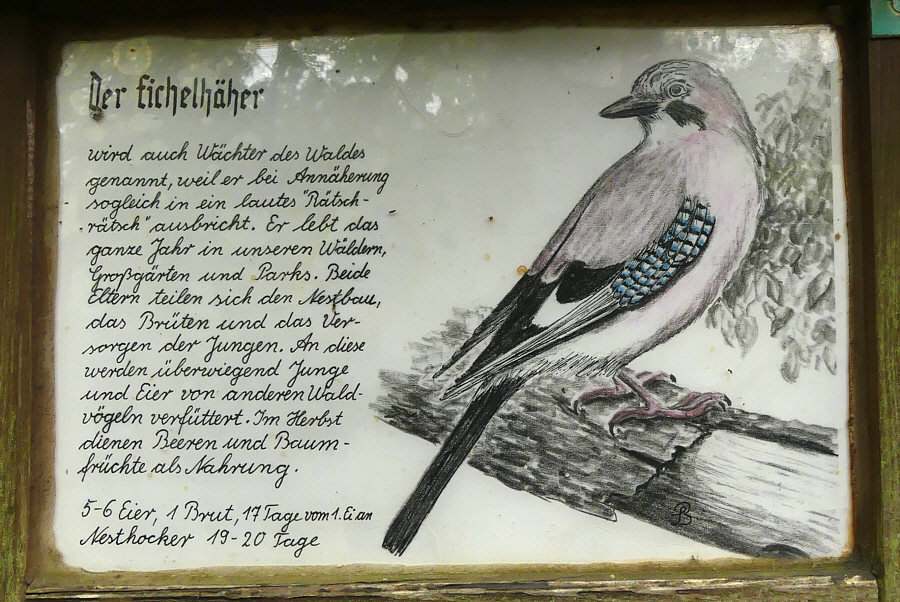 Der Eichelhäher
wird auch Wächter des Waldes
genannt, weil er bei Annäherung
sogleich in ein lautes "Rätsch-
rätsch" ausbricht. Er lebt das
ganze Jahr in unseren Wäldern,
Großgärten und Parks. Beide
Eltern teilen sich den Nestbau,
das Brüten und das Ver-
sorgen der Jungen. An diese
werden überwiegend Junge
und Eier von anderen Wald-
vögeln verfüttert. Im Herbst
dienen Beeren und Baum-
früchte als Nahrung.
5-6 Eier, 1 Brut, 17 Tage vom 1. Ei an
Nesthocker 19-20 Tage